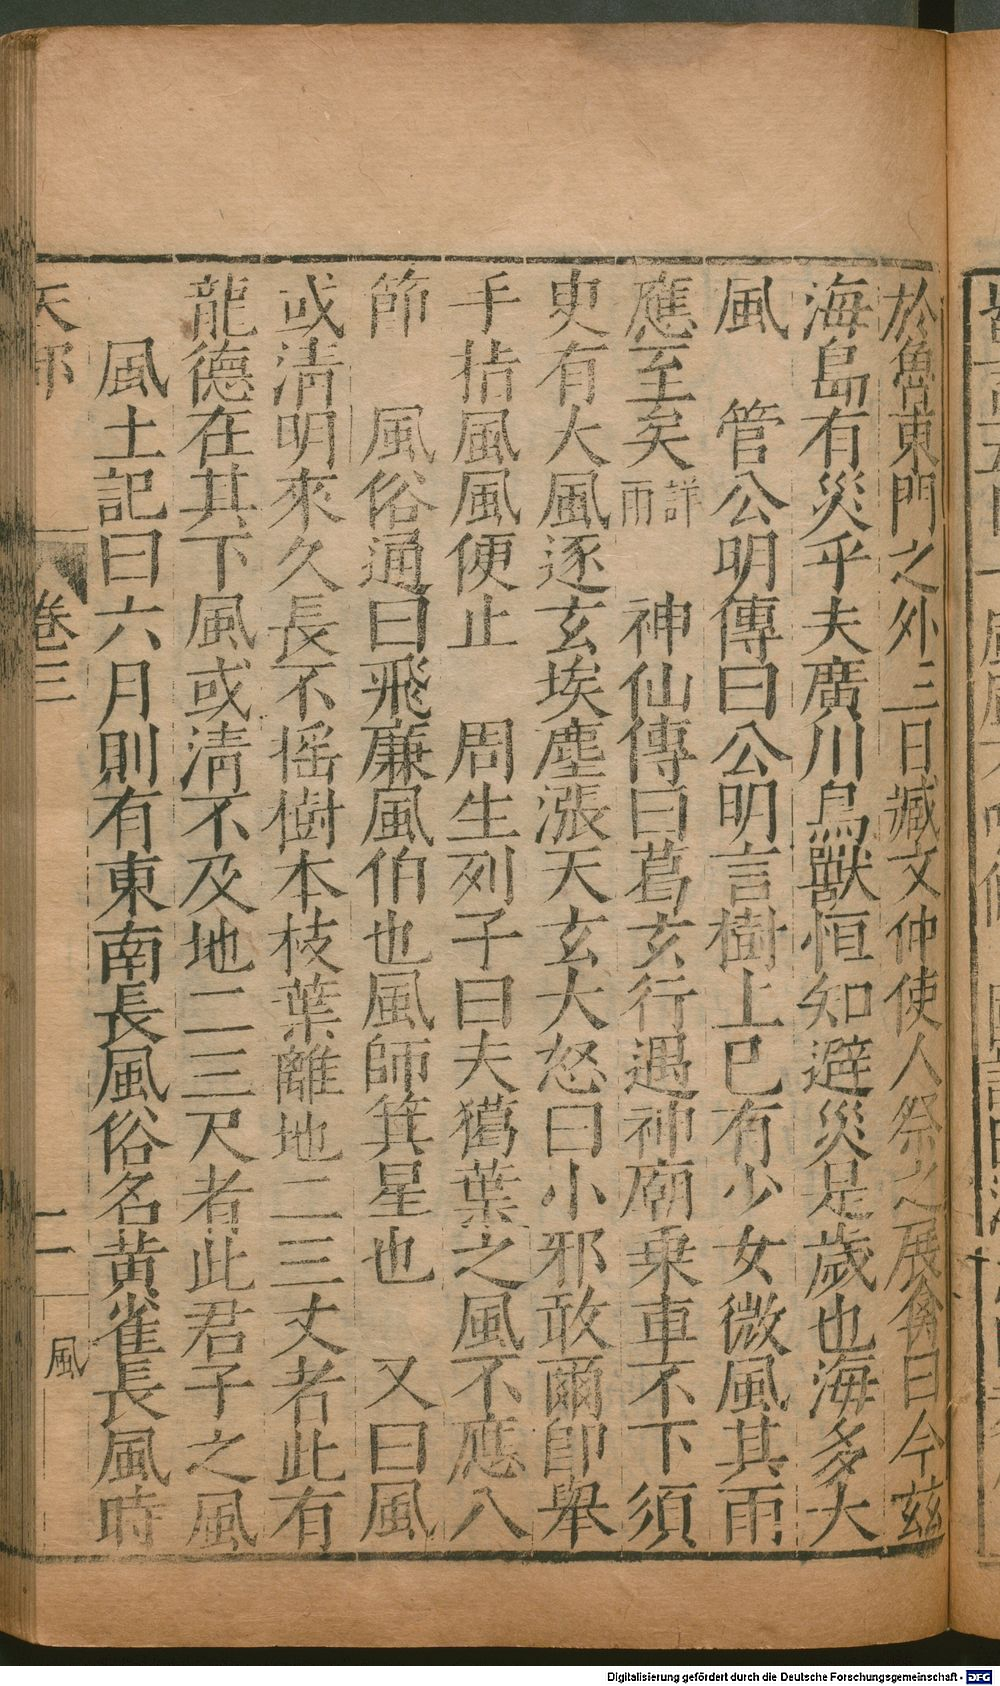 於魯東門之外三日臧文仲使人祭之展禽曰今茲
海島有災乎夫廣川鳥獸恒知避災是歲也海多大
風　管公明傳曰公明言樹上已有少女微風其雨
應至矣詳雨　神仙傳曰葛玄行遇神廟乘車不下須
史有大風逐玄埃塵漲天玄大怒曰小邪敢爾卽舉
手指風風便止　周生列子曰夫獦葉之風不應八
節　風俗通曰飛廉風伯也風師箕星也　又曰風
或清明來久長不搖樹本枝葉離地二三丈者此有
龍德在其下風或清不及地二三尺者此君子之風
風土記曰六月則有東南長風俗名黃雀長風時
天部　卷三　二　風
Digitalisierung gefördert durch die Deutsche Forschungsgemeinschaft - DFG